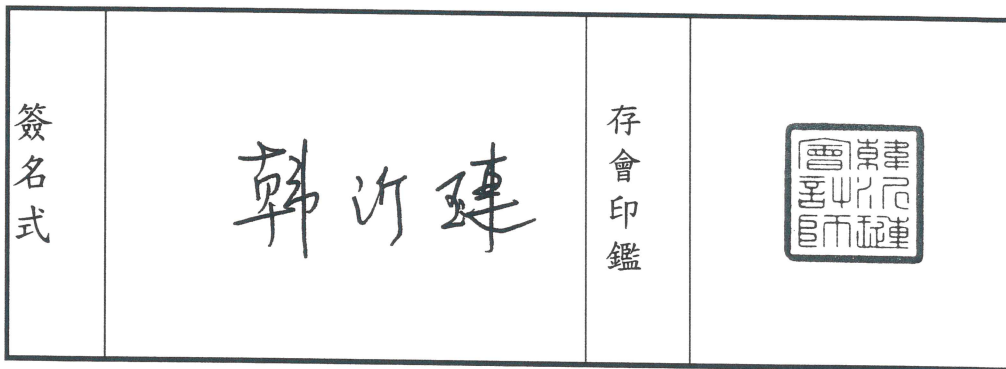 簽名式
韓沂璉
存會印鑑
韓沂璉
會計師